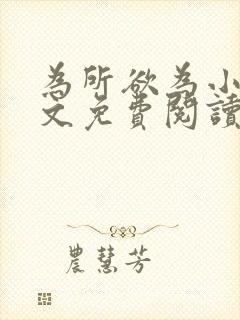 為所欲為小
文免費閱讀
農慧芳